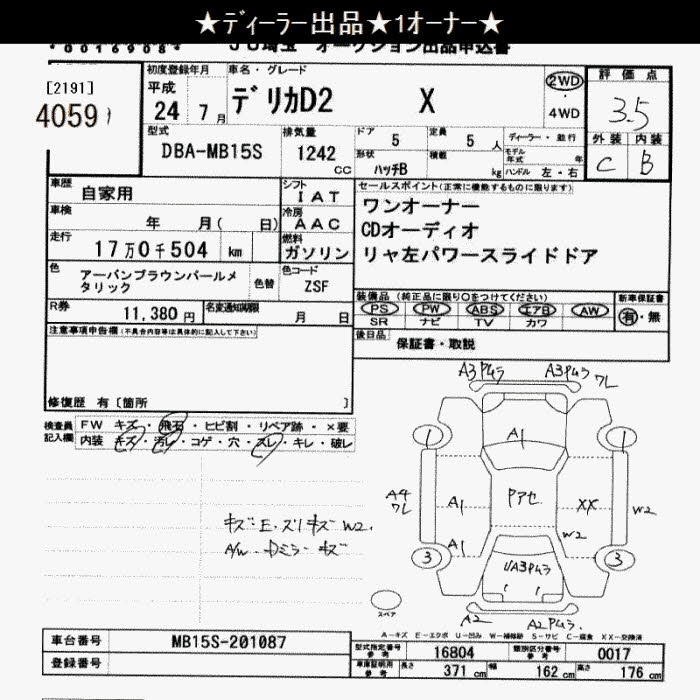 ★ディーラー出品★1オーナー★
*0016908*
JU埼玉 オークション出品申込書
[2191]
4059
初度登録年月
平成
24 7月
車名・グレード
デリカD2 X
2WD
・
4WD
評価点
3.5
外装 内装
C B
型式
DBA-MB15S
排気量
1242
CC
ドア
5
定員
5人
形状
ハッチB
積載
kg
ディーラー・並行
モデル年式 年
ハンドル 左・右
車歴
自家用
シフト
IAT
車検
年 月( 日)
冷房
AAC
走行
17万0千504 km
燃料
ガソリン
セールスポイント(正常に機能するものに限ります)
ワンオーナー
CDオーディオ
リヤ左パワースライドドア
色
アーバンブラウンパールメタリック
色替
色コード
ZSF
R券
11,380 円
名変通知期限
月 日
装備品 (純正品に限り○をつけてください)
PS PW ABS エアB AW
SR ナビ TV カワ
新車保証書
有・無
後日品
保証書・取説
注意事項申告欄(不具合内容等は具体的に記入して下さい)
修復歴 有〔箇所 〕
検査員記入欄
FW キズ・飛石・ヒビ割・リペア跡・×要
内装 キズ・汚レ・コゲ・穴・スレ・キレ・破レ
キズ・E・ズリキズ W2.
A/W・Dミラーキズ
A3PAムラ A3PAムラ
ワレ
1 A1 1
A4
ワレ
A1 Pアセ XX W2
A1 W2
3 UA3PAムラ 3
スペア
A2 A2PAムラ.
A－キズ E－エクボ U－凹み W－補修跡 S－サビ C－腐食 XX－交換済
車台番号
MB15S-201087
登録番号
型式指定番号 参考
16804
類別区分番号 参考
0017
車庫証明用 参考
長さ 371 cm 幅 162 cm 高さ 176 cm